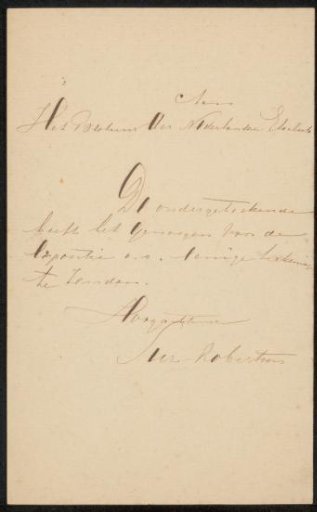 Aan
Het Bestuur der Nederlandsche
De ondergeteekende
heeft het genoegen voor de
Expositie a.s. eenige
te zenden.
Hoogachtend
Robertson